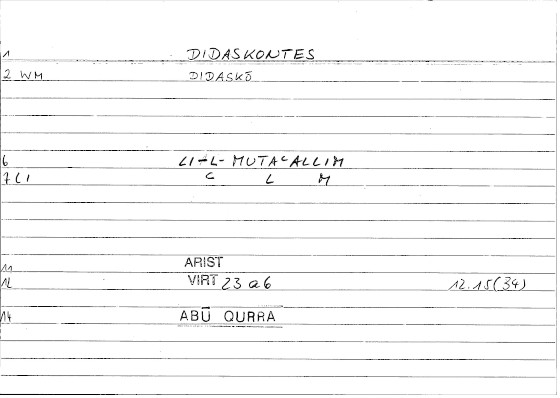 1 DIDASKONTES
2 WM DIDASKŌ
6 LI-L-MUTAᶜALLIM
7 LI ᶜ L M
11 ARIST
12 VIRT 23 a6 12.15(34)
14 ABŪ QURRA